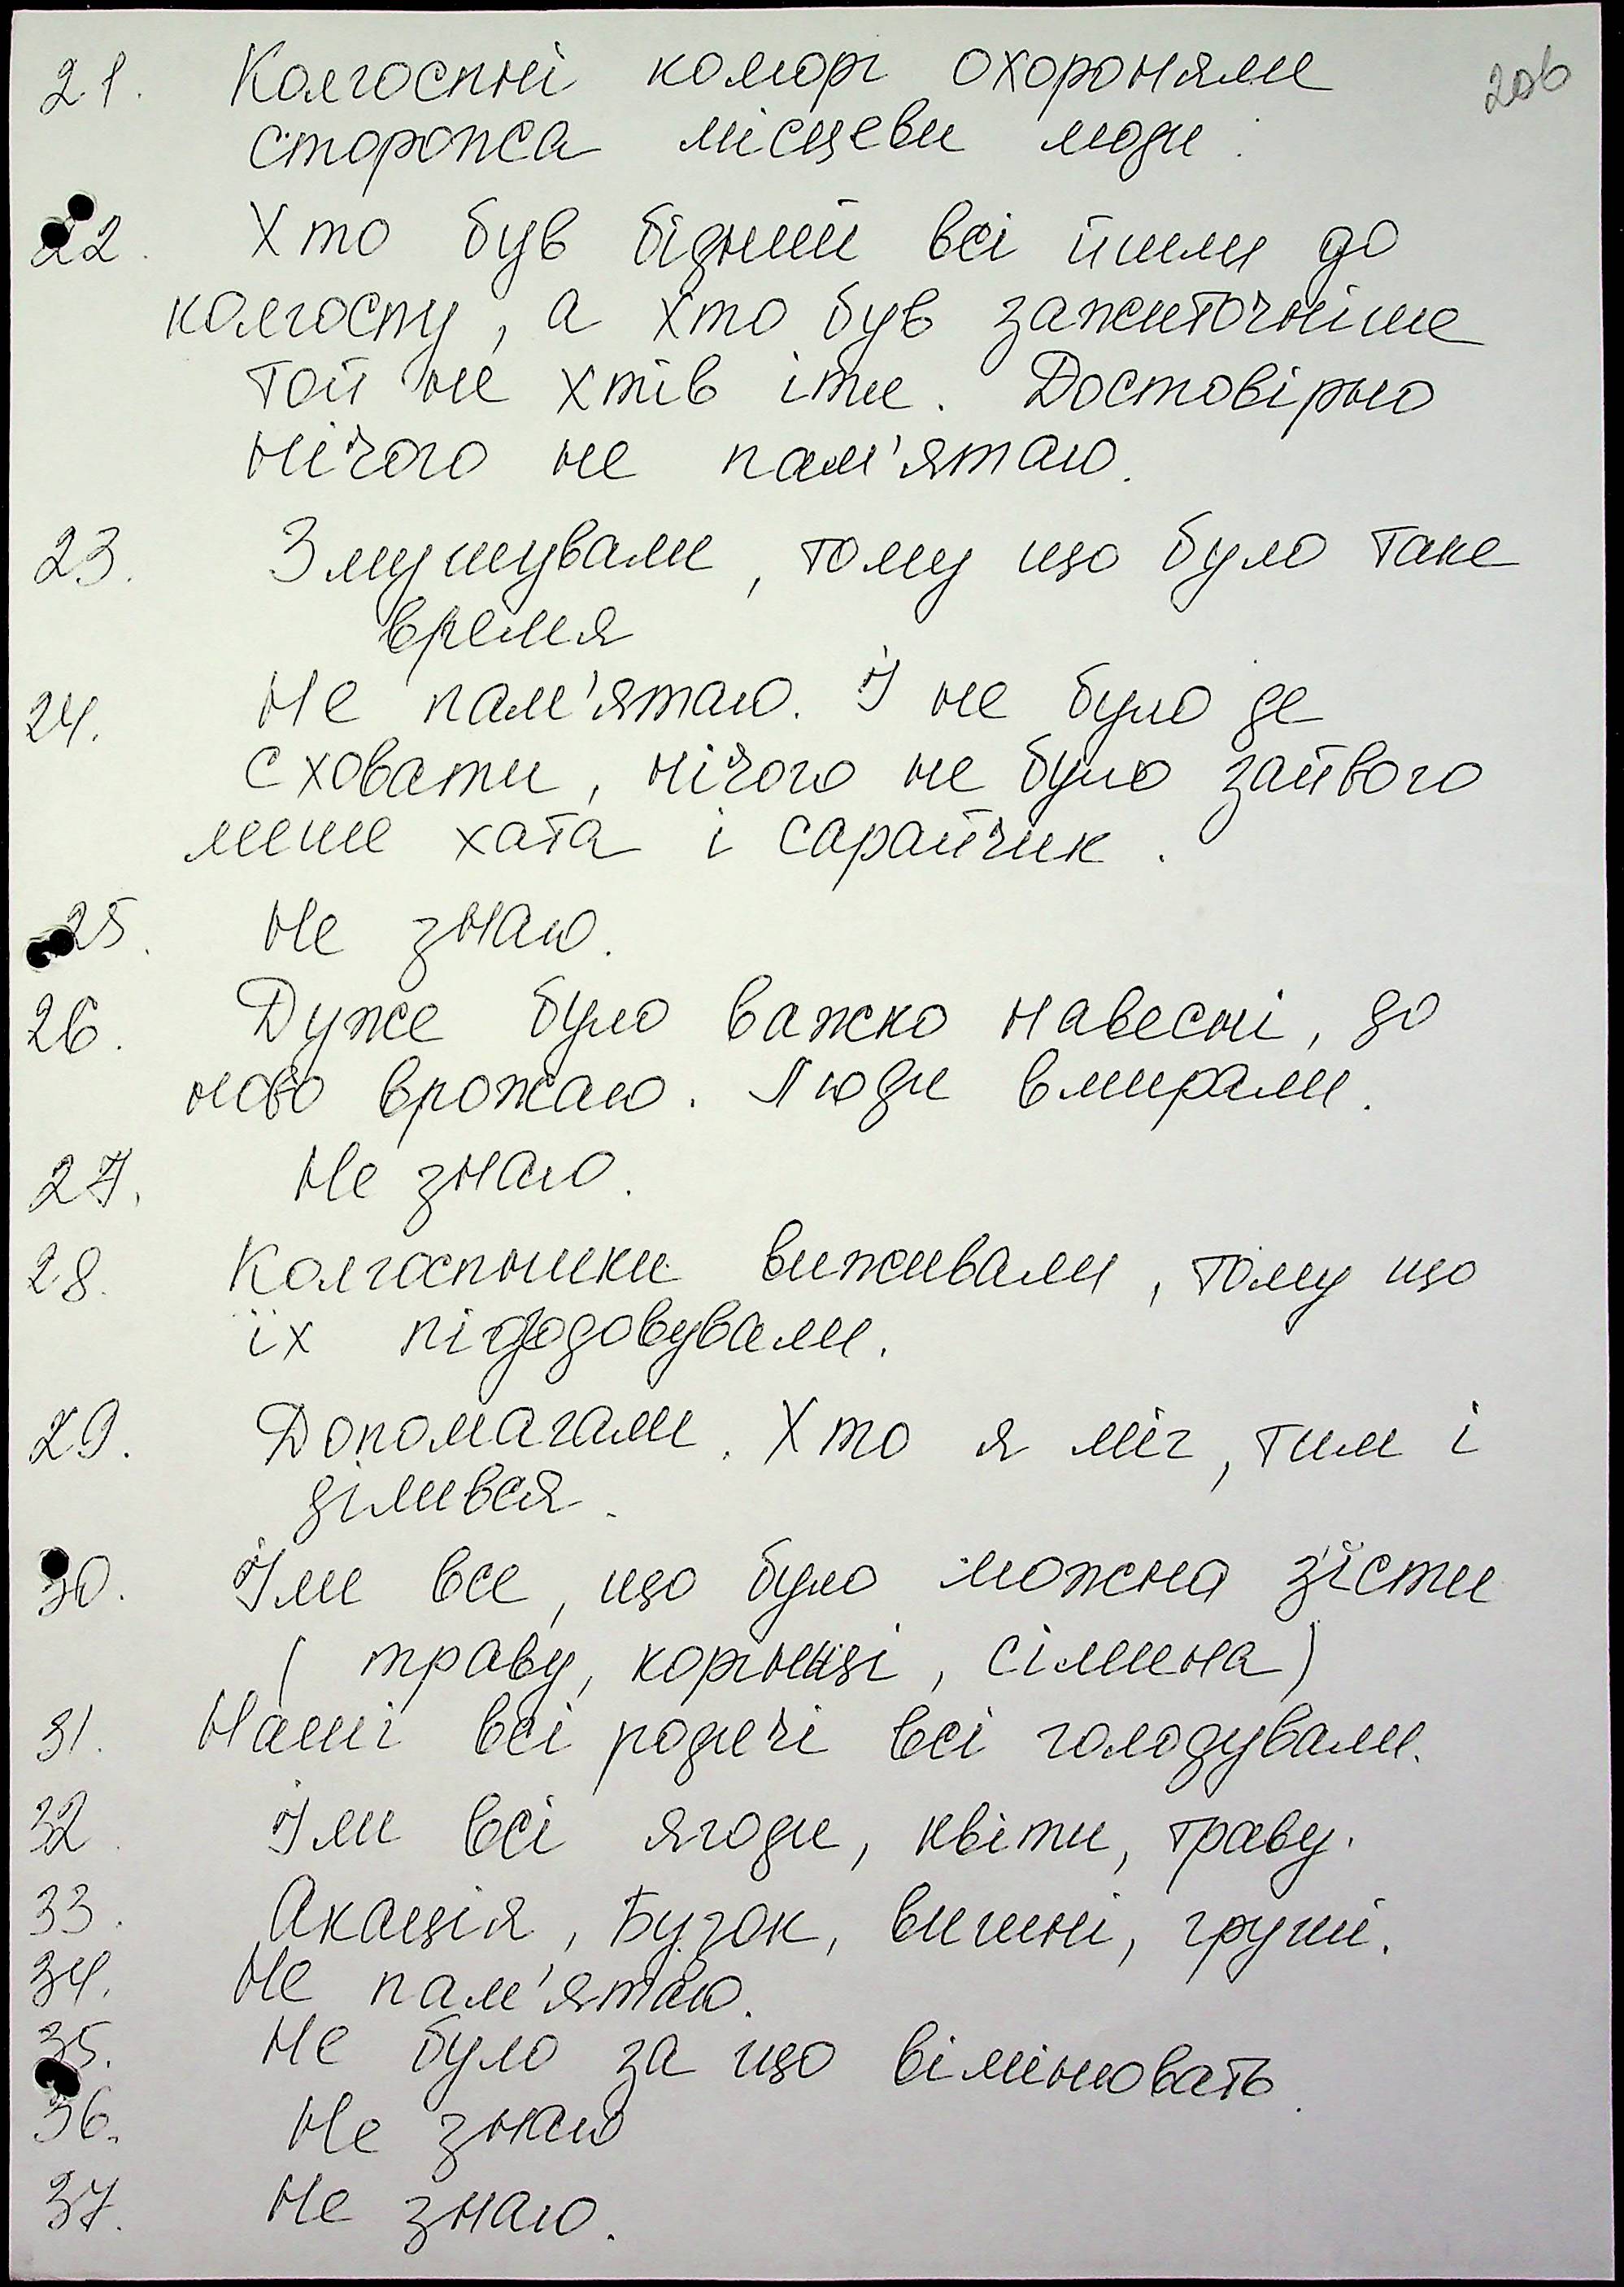 206
21. Колгоспні комори охороняли
сторожа місцеви люди.
22. Хто був бідний всі йшли до
колгоспу, а хто був зажиточніше
той не хтів іти. Достовірно
нічого не пам'ятаю.
23. Змушували, тому що було таке
время
24. Не пам'ятаю. І не було де
сховати, нічого не було зайвого
лише хата і сарайчик.
25. Не знаю.
26. Дуже було важко навесні, до
ново врожаю. Люди вмирали.
27. Не знаю.
28. Колгоспники виживали, тому що
їх підгодовували.
29. Допомагали. Хто я міг, тим і
ділився.
30. Їли все, що було можна зїсти
(траву, корінці, сімина)
31. Наші всі родичі всі голодували.
32. Їли всі ягоди, квіти, траву.
33. Акація, Бузок, вишні, груші.
34. Не пам'ятаю.
35. Не було за що віміновать.
36. Не знаю
37. Не знаю.